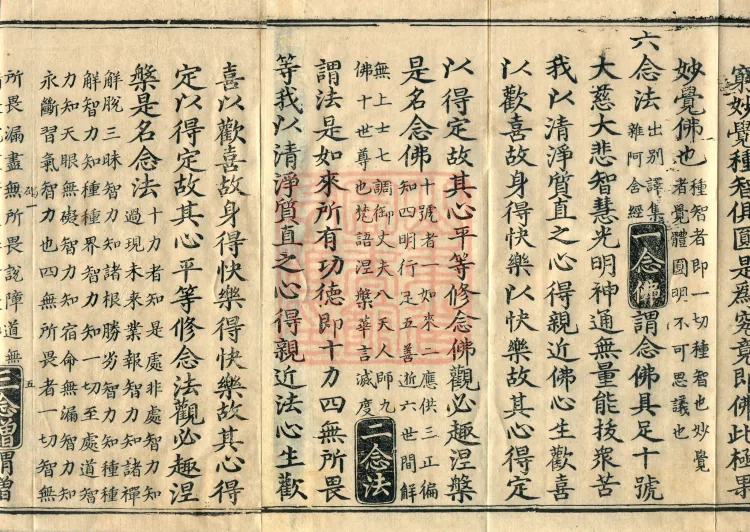 窮妙覺種智俱圓是爲究竟即佛此極果
妙覺佛也
種智者即一切種智也妙覺
者覺體圓明不可思議也
六念法
出別譯集
雜阿含經
一念佛
謂念佛具足十號
大慈大悲智慧光明神通無量能拔衆苦
我以清淨質直之心得親近佛心生歡喜
以歡喜故身得快樂以快樂故其心得定
以得定故其心平等修念佛觀必趣涅槃
是名念佛
十號者一如來二應供三正徧
知四明行足五善逝六世間解
無上士七調御丈夫八天人師九
佛十世尊也梵語涅槃華言滅度
二念法
謂法是如來所有功德即十力四無所畏
等我以清淨質直之心得親近法心生歡
喜以歡喜故身得快樂得快樂故其心得
定以得定故其心平等修念法觀必趣涅
槃是名念法
十力者知是處非處智力知
過現未來業報智力知諸禪
解脫三昧智力知諸根勝劣智力知種種
解智力知種種界智力知一切至處道智
力知天眼無礙智力知宿命無漏智力知
永斷習氣智力也四無所畏者一切智無
五
所畏漏盡無所畏說障道無
三念僧
謂僧